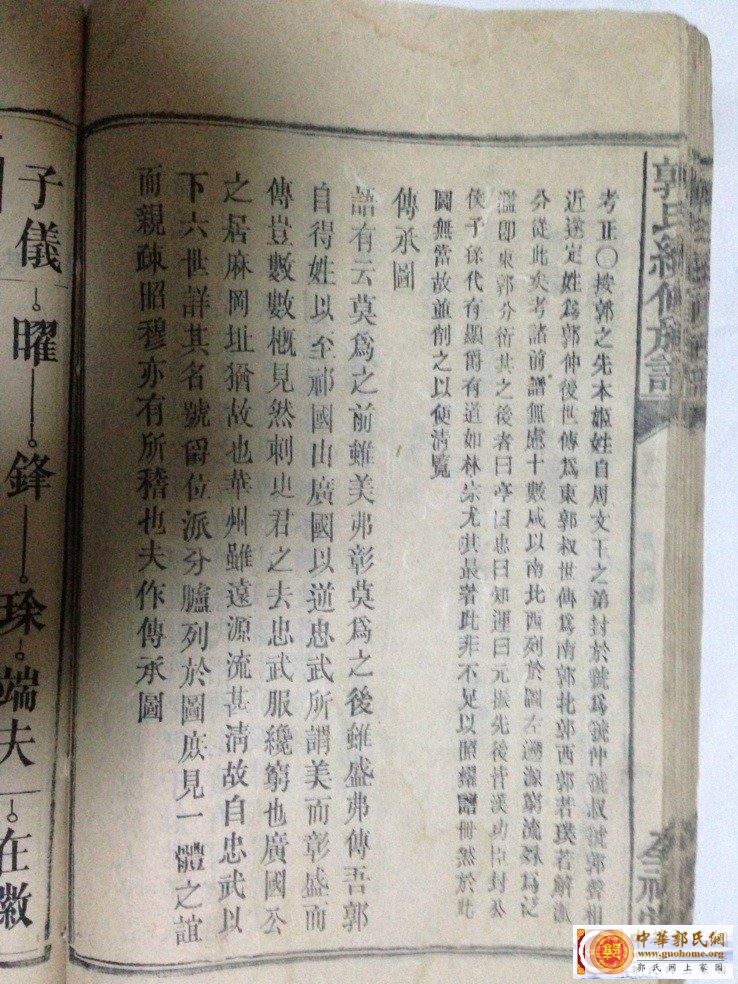 郭氏續修族譜
考正〇按郭之先本姬姓自周文王之弟封於虢爲虢仲虢叔虢郭聲相
近遂定姓爲郭仲後世傳爲東郭叔世傳爲南郭北郭西郭若璞若解派
分從此矣考諸前譜無慮十數咸以南北西列於圖左遡源窮流殊爲泛
濫即東郭分衍其之後者曰亭曰忠曰知運曰元振先後皆漢功臣封公
侯子孫代有顯爵有道如林宗尤其最著此非不足以照耀譜冊然於此
圖無當故並削之以便清覽
傳承圖
語有云莫爲之前雖美弗彰莫爲之後雖盛弗傳吾郭
自得姓以至祁國山廣國以逆忠武所謂美而彰盛而
傳豈數數槪見然刺史君之去忠武服纔窮也廣國公
之居麻岡址猶故也華州雖遠源流甚清故自忠武以
下六世詳其名號爵位派分臚列於圖庶見一體之誼
而親疎昭穆亦有所稽也夫作傳承圖
子儀
曜
鋒
琛
端夫
在徽
中華郭氏網
www.guohome.org
郭氏網上家園